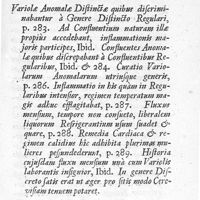 Variolæ Anomalæ Distinctæ quibus discrimi-
nabantur à Genere Distincto Regulari,
p. 283. Ad Confluentium naturam illæ
propius accedebant, inflammationis ma-
joris participes, Ibid. Confluentes Anoma-
læ quibus discrepabant à Confluentibus Re-
gularibus, Ibid. & 284. Curatio Vario-
larum Anomalarum utriusque generis,
p. 286. Inflammatio in his quàm in Regu-
laribus intensior, regimen temperatum ma-
gis adhuc efflagitabat, p. 287. Fluxus
mensium, tempore non consueto, liberalem
liquorum Refrigerantium usum suadet &
quare, p. 288. Remedia Cardiaca & re-
gimen calidius hîc adhibita plurimas mu-
lieres pessundederunt, p. 289. Historia
cujusdam fluxu mensium unà cum Variolis
laborantis insignior, Ibid. In genere Dis-
creto satis erat ut æger pro sitis modo Cere-
visiam tenuem potaret.